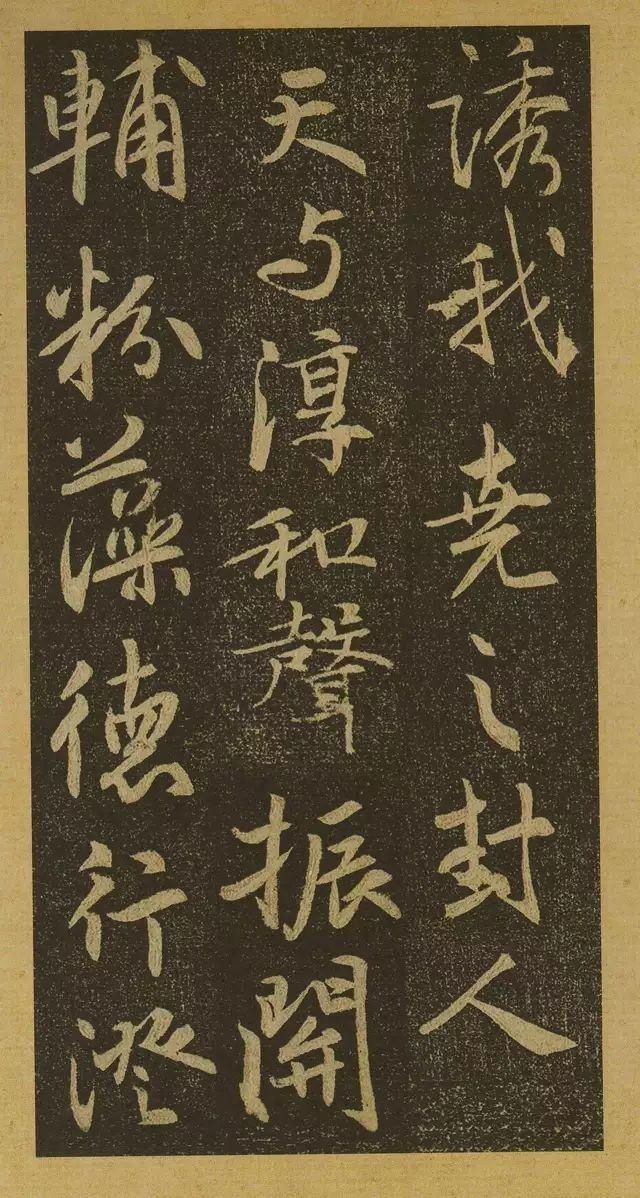 誘我尭之封人
天与淳和聲振開
輔粉藻德行澄